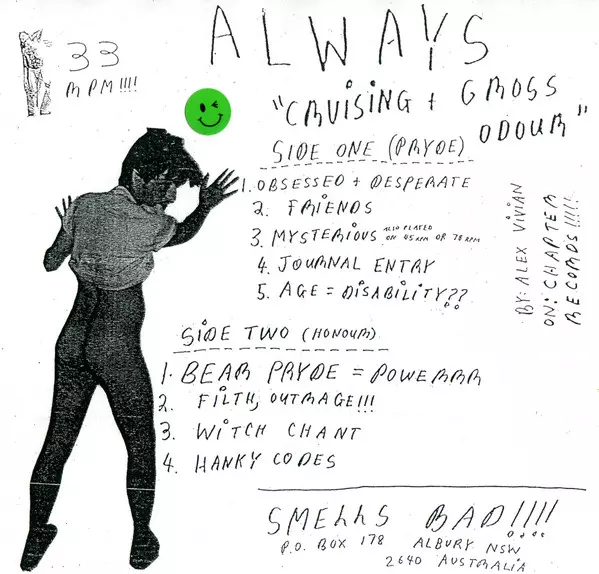 33
RPM!!!!
ALWAYS
"CRUISING + GROSS
ODOUR"
SIDE ONE (PRYDE)
1. OBSESSED + DESPERATE
2. FRIENDS
3. MYSTERIOUS ALSO PLAYED
ON 45 RPM OR 78 RPM
4. JOURNAL ENTRY
5. AGE = DISABILITY??
BY: ALEX VIVIAN
ON: CHAPTER
RECORDS!!!!!
SIDE TWO (HONOUR)
1. BEAR PRYDE = POWERRR
2. FILTH, OUTRAGE!!!
3. WITCH CHANT
4. HANKY CODES
SMELLS BAD!!!!
P.O. BOX 178 ALBURY NSW
2640 AUSTRALIA